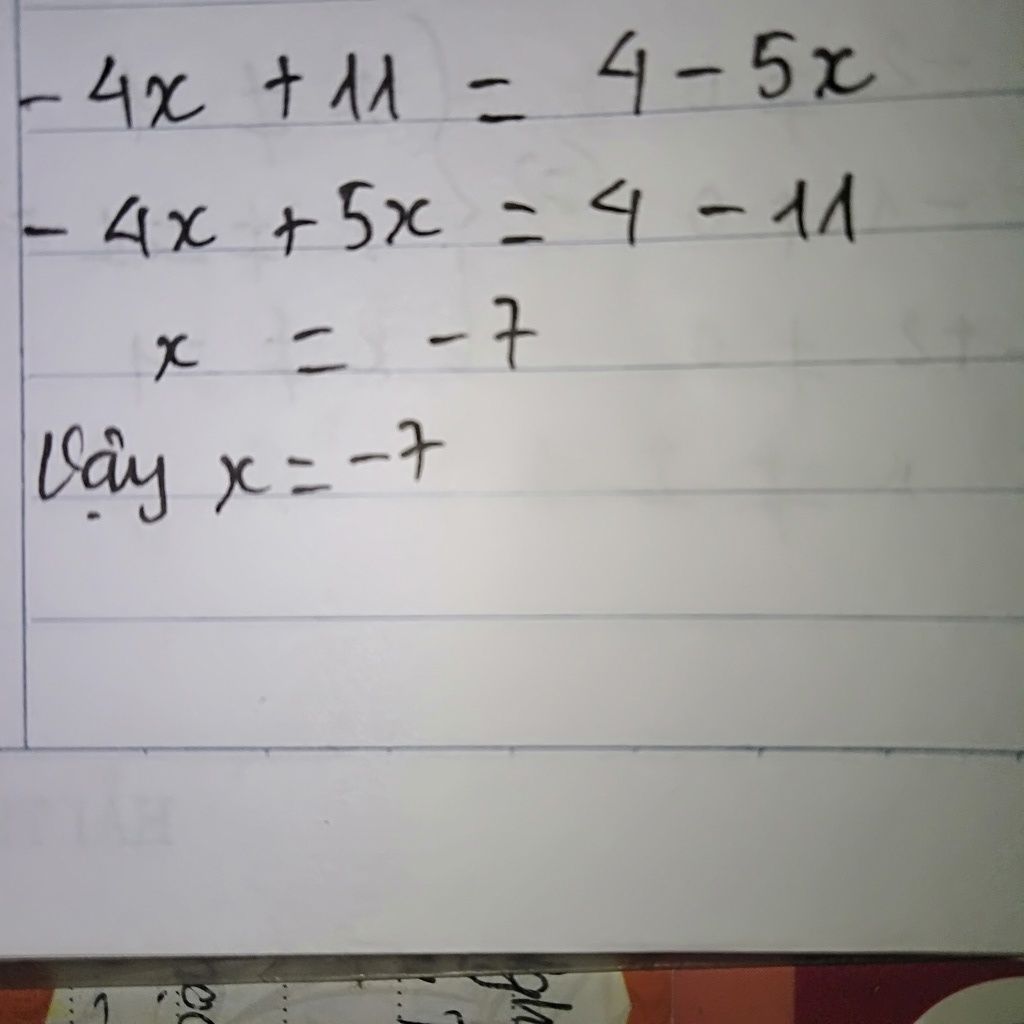 - 4x + 11 = 4 - 5x
- 4x + 5x = 4 - 11
x = -7
Vậy x = -7